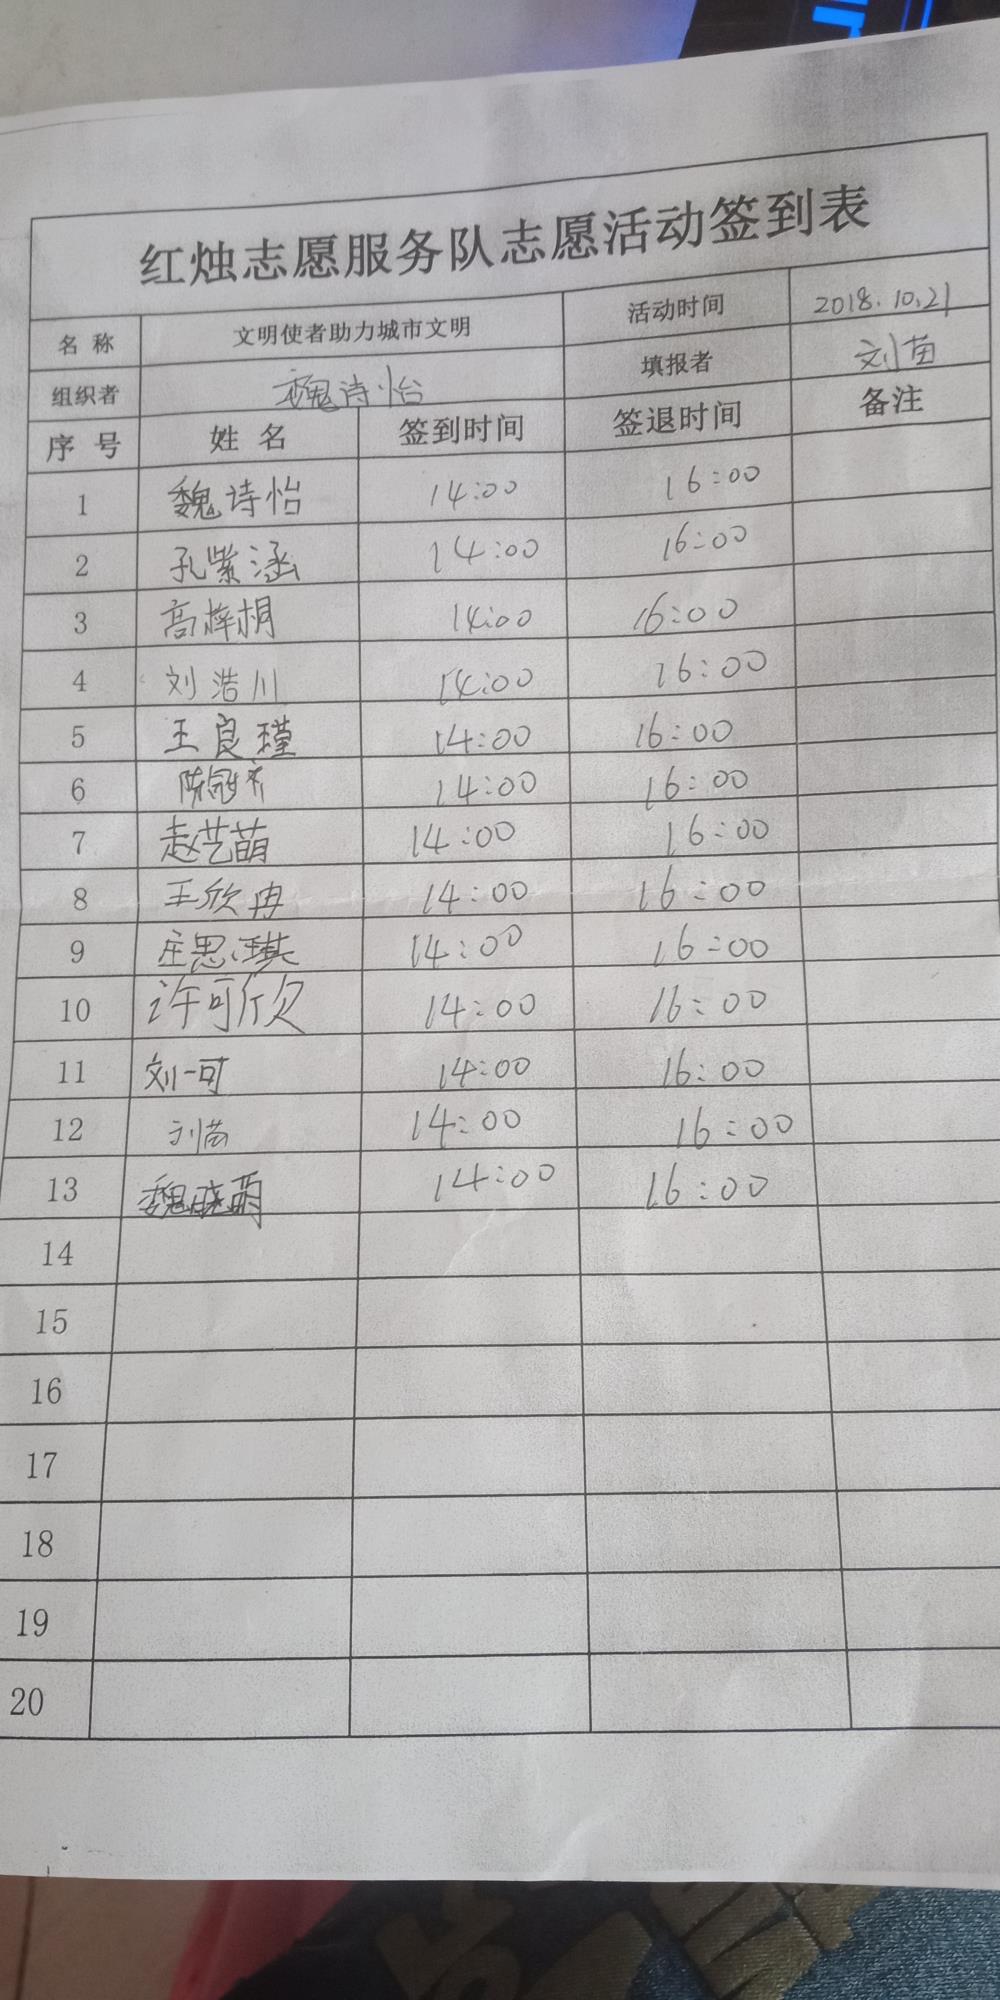 红烛志愿服务队志愿活动签到表
名 称 文明使者助力城市文明 活动时间 2018.10.21
组织者 魏诗怡 填报者 刘苗
序 号 姓 名 签到时间 签退时间 备注
1 魏诗怡 14:00 16:00
2 孔紫涵 14:00 16:00
3 高梓桐 14:00 16:00
4 刘浩川 14:00 16:00
5 王良瑾 14:00 16:00
6 陈冠齐 14:00 16:00
7 赵艺萌 14:00 16:00
8 王欣冉 14:00 16:00
9 庄思琪 14:00 16:00
10 许可欣 14:00 16:00
11 刘一可 14:00 16:00
12 刘苗 14:00 16:00
13 魏晓萌 14:00 16:00
14
15
16
17
18
19
20